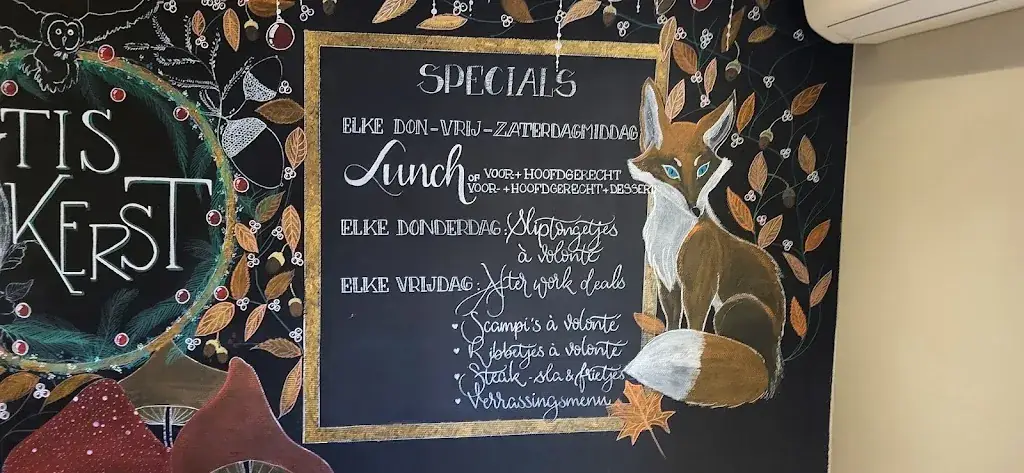 TIS
KERST
SPECIALS
ELKE DON-VRIJ-ZATERDAGMIDDAG
Lunch OF VOOR+ HOOFDGERECHT
VOOR-+HOOFDGERECHT+DESSERT
ELKE DONDERDAG: Sliptongetjes
à volonté
ELKE VRIJDAG: After work deals
• Scampi's à volonté
• Ribbetjes à volonté
• Steak-sla & frietjes
• Verrassingsmenu